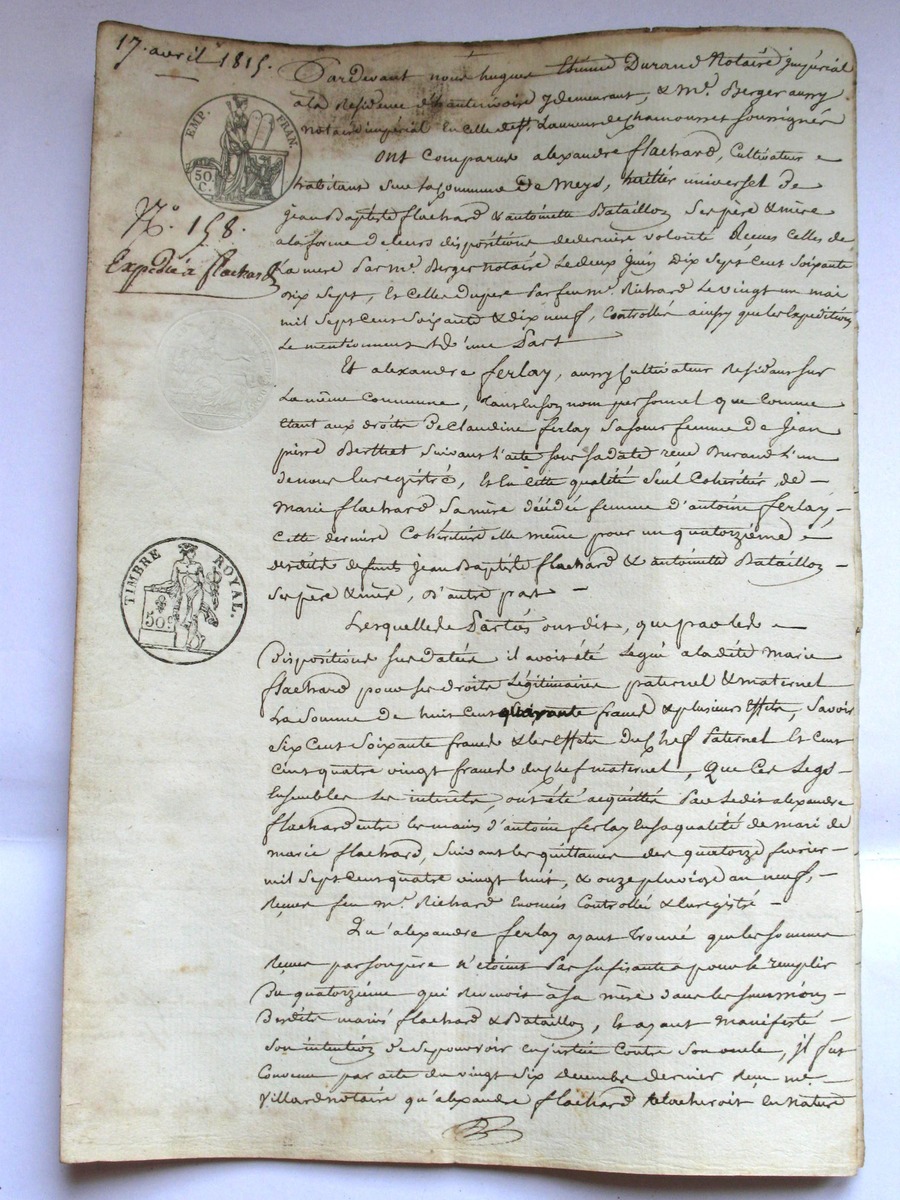 17. avril 1815.
Pardevant nous hugues Etienne Durand Notaire jmpérial
a la Residence d'hauterivoire y demeurant, & Mr. Berger aussy
notaire impérial En celle de st. Laurent de Chamousset soussignés
EMP. FRAN.
50 C.
Ont comparu alexandre flachard, Cultivateur
habitant sur la Commune De Meys, héritier universel de
Jean Baptiste flachard & antoinette Bataillon Ses père & mère
N.o 158.
a la forme de leurs dispositions de dernière volonté Recues Celles de
Expedié a flachard
La mere Par Mr. Berger notaire Le deux Juin Dix Sept Cent Soixante
dix Sept, Et Celles du pere Par feu Mr. Richard Le vingt un mai
mil Sept Cent Soixante & dix neuf, Controllées ainsy que les Expeditions
Le mentionnent d'une Part
Et alexandre ferlay, aussy Cultivateur Residant sur
La même Commune, tant En Son nom personnel que Comme
Etant aux droits de Claudine ferlay Sa sœur femme de Jean
pierre Berthet Suivant l'acte Sous Sa date reçu Durand L'un
de nous Enregistré, Et En Cette qualité Seul Cohéritier de
Marie flachard Sa mère décédée femme d'antoine ferlay,
Cette derniere Cohéritiere elle même pour un quatorzième
desdits defunts Jean Baptiste flachard & antoinette Bataillon
Ses père & mère, D'autre part
TIMBRE ROYAL.
50 C
Lesquelles Parties ont dit, que par les
Dispositions Sus Datées il avoit été Legué a la dite Marie
flachard pour Ses droits Légitimaires paternel & maternel
La Somme de huit Cent quarante francs & plusieurs Effets, Savoir
Six Cent Soixante francs & les Effets Du Chef Paternel Et Cent
quatre vingt francs du Chef maternel, Que Ces Legs
Ensembles Les interêts, ont été acquittés Par Ledit alexandre
flachard entre les mains d'antoine ferlay En sa qualité de mari de
marie flachard, Suivant les quittances des quatorze fevrier
mil Sept Cent quatre vingt huit, & onze pluviose an neuf,
Reçues feu Mr. Richard Controllées & Enregistré
Qu'alexandre ferlay ayant Trouvé que les Sommes
Reçues par Son père n'étoient Pas sufisantes pour le remplir
Du quatorzième qui Revenoit à Sa mère dans les Successions
Desdits mariés flachard & Bataillon, Et ayant manifesté
Son intention de Se pourvoir en justice Contre Son oncle, jl fut
Convenu par acte du vingt Six decembre dernier Reçu me.
Villard notaire qu'alexandre flachard Relacheroit En nature